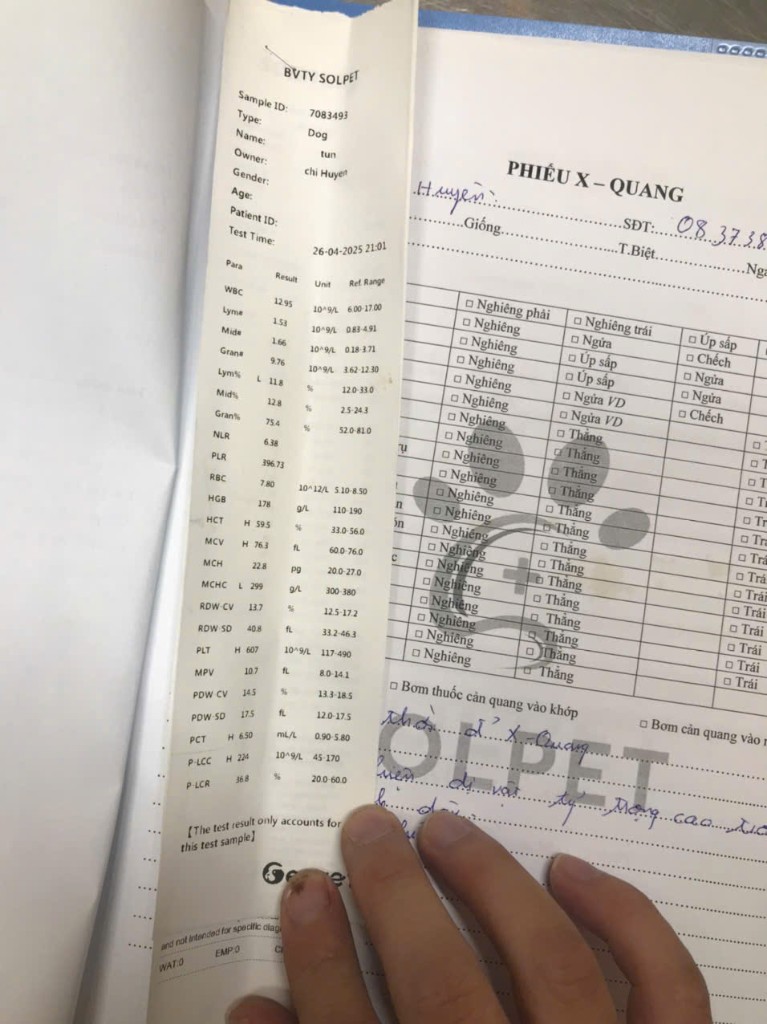 BVTY SOLPET
Sample ID: 7083493
Type: Dog
Name: tun
Owner: chi Huyen
Gender:
Age:
Patient ID:
Test Time: 26-04-2025 21:01
Para Result Unit Ref. Range
WBC 12.95 10^9/L 6.00-17.00
Lym# 1.53 10^9/L 0.83-4.91
Mid# 1.66 10^9/L 0.18-3.71
Gran# 9.76 10^9/L 3.62-12.30
Lym% L 11.8 % 12.0-33.0
Mid% 12.8 % 2.5-24.3
Gran% 75.4 % 52.0-81.0
NLR 6.38
PLR 396.73
RBC 7.80 10^12/L 5.10-8.50
HGB 178 g/L 110-190
HCT H 59.5 % 33.0-56.0
MCV H 76.3 fL 60.0-76.0
MCH 22.8 pg 20.0-27.0
MCHC L 299 g/L 300-380
RDW-CV 13.7 % 12.5-17.2
RDW-SD 40.8 fL 33.2-46.3
PLT H 607 10^9/L 117-490
MPV 10.7 fL 8.0-14.1
PDW-CV 14.5 % 13.3-18.5
PDW-SD 17.5 fL 12.0-17.5
PCT H 6.50 mL/L 0.90-5.80
P-LCC H 224 10^9/L 45-170
P-LCR 36.8 % 20.0-60.0
【The test result only accounts for
this test sample】
and not intended for specific
WAT:0 EMP:0
PHIẾU X – QUANG
Huyền: SĐT: 08.3738
Giống T.Biệt
□ Nghiêng phải □ Nghiêng trái □ Úp sấp
□ Nghiêng □ Ngửa □ Chếch
□ Nghiêng □ Úp sấp □ Ngửa
□ Nghiêng □ Úp sấp □ Ngửa
□ Nghiêng □ Ngửa VD □ Chếch
□ Nghiêng □ Ngửa VD
□ Nghiêng □ Thẳng
□ Nghiêng □ Thẳng
□ Nghiêng □ Thẳng
□ Nghiêng □ Thẳng
□ Nghiêng □ Thẳng
□ Nghiêng □ Thẳng
□ Nghiêng □ Thẳng
□ Nghiêng □ Thẳng
□ Nghiêng □ Thẳng □ Trái
□ Nghiêng □ Thẳng □ Trái
□ Nghiêng □ Thẳng □ Trái
□ Nghiêng □ Thẳng □ Trái
□ Bơm thuốc cản quang vào khớp □ Bơm cản quang vào
SOLPET
X-Quang
dị vật tỷ trọng cao